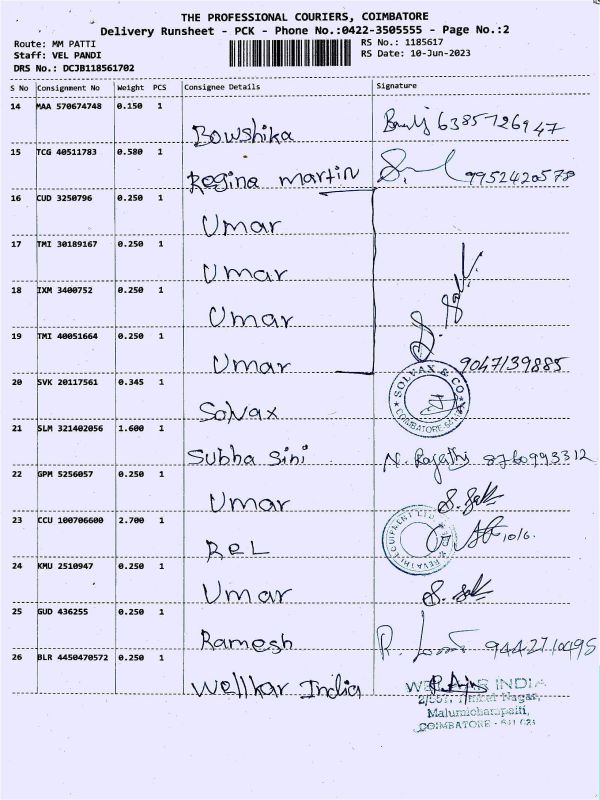 THE PROFESSIONAL COURIERS, COIMBATORE
Delivery Runsheet - PCK - Phone No.:0422-3505555 - Page No.:2
Route: MM PATTI RS No.: 1185617
Staff: VEL PANDI RS Date: 10-Jun-2023
DRS No.: DCJB118561702
S No Consignment No Weight PCS Consignee Details Signature
14 MAA 570674748 0.150 1
Bowshika 6385726947
15 TCG 40511783 0.580 1
Regina martin 9952420578
16 CUD 3250796 0.250 1
Umar
17 TMI 30189167 0.250 1
Umar
18 IXM 3400752 0.250 1
Umar
19 TMI 40051664 0.250 1
Umar 9047139885
20 SVK 20117561 0.345 1
Solvax SOLVAX & CO. COIMBATORE
21 SLM 321402056 1.600 1
Subha Sini N. Rajathi 8760993312
22 GPM 5256057 0.250 1
Umar
23 CCU 100706600 2.700 1
REL 10/6.
24 KMU 2510947 0.250 1
Umar
25 GUD 436255 0.250 1
Ramesh 9442710495
26 BLR 4450470572 0.250 1
Wellkar India INDIA
Nagar,
Malumichampatti,
COIMBATORE